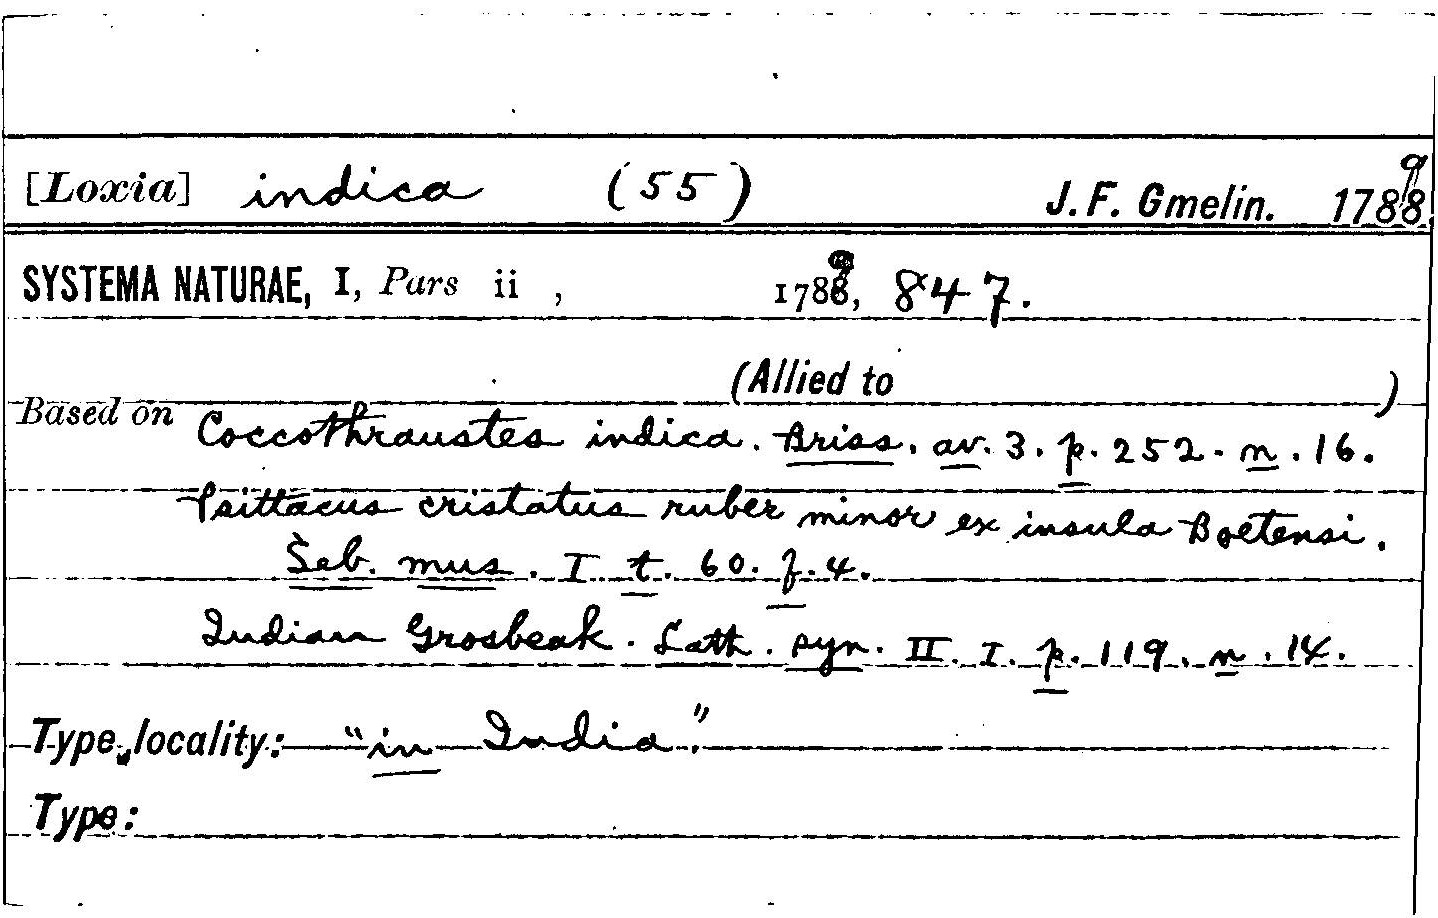 [Loxia] indica (55) J. F. Gmelin. 1789.
SYSTEMA NATURAE, I, Pars ii , 1789, 847.
(Allied to )
Based on Coccothraustes indica. Briss. av. 3. p. 252. n. 16.
Psittacus cristatus ruber minor ex insula Boetensi.
Seb. mus. I t. 60. f. 4.
Indian Grosbeak. Lath. syn. II. I. p. 119. n. 14.
Type locality: "in India."
Type: